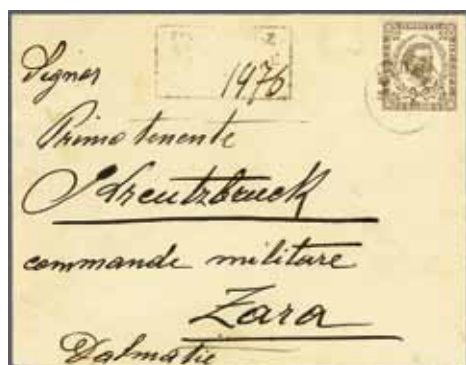 1976
Signor
Primo tenente
Kreutzbruck
commande militare
Zara
Dalmatie